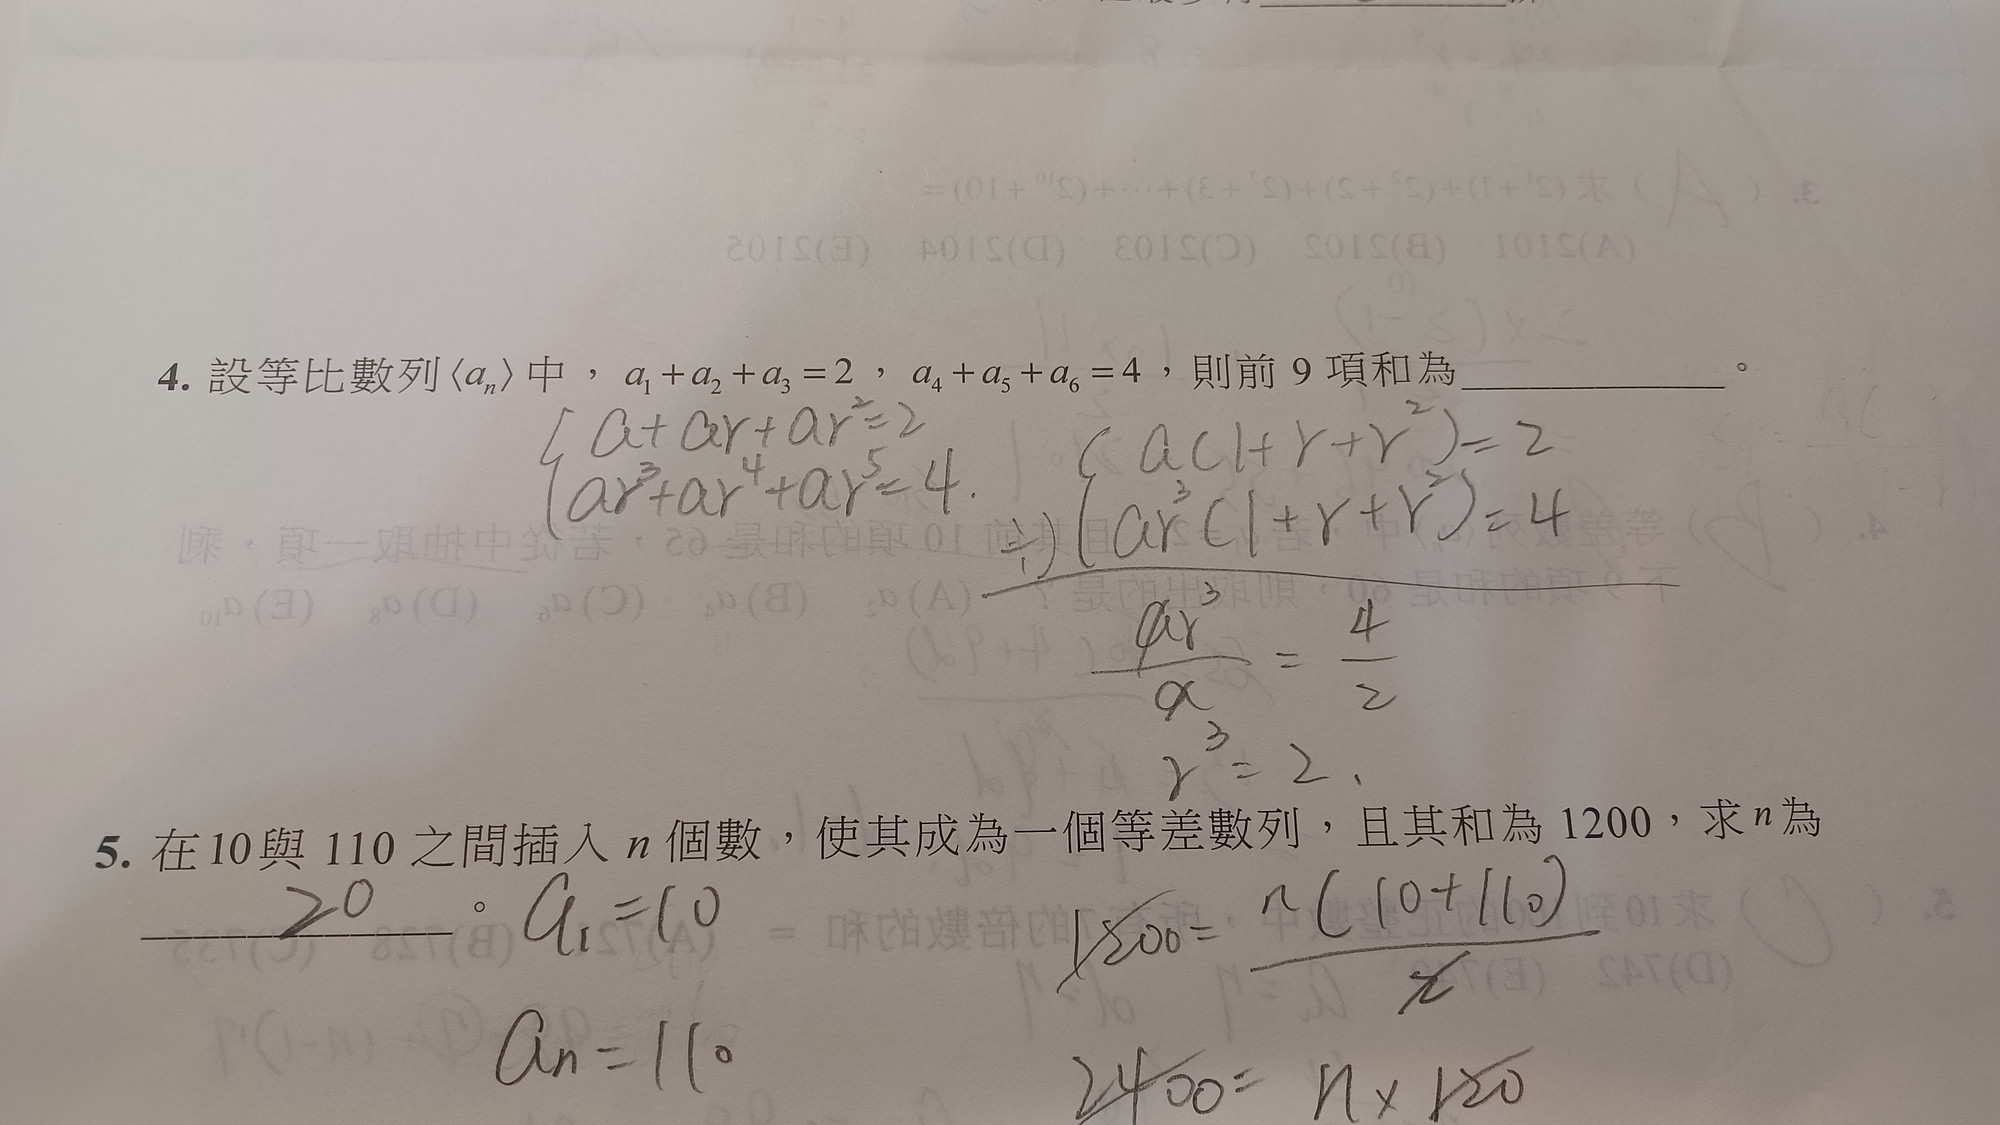 4. 設等比數列⟨aₙ⟩中，a₁+a₂+a₃=2，a₄+a₅+a₆=4，則前 9 項和為________。
a+ar+ar²=2
ar³+ar⁴+ar⁵=4.
a(1+r+r²)=2
÷) ar³(1+r+r²)=4
ar³/a = 4/2
r³=2.
5. 在10與 110 之間插入 n 個數，使其成為一個等差數列，且其和為 1200，求 n 為
20 。
a₁=10
1200= n(10+110)/2
aₙ=110
2400= n×120